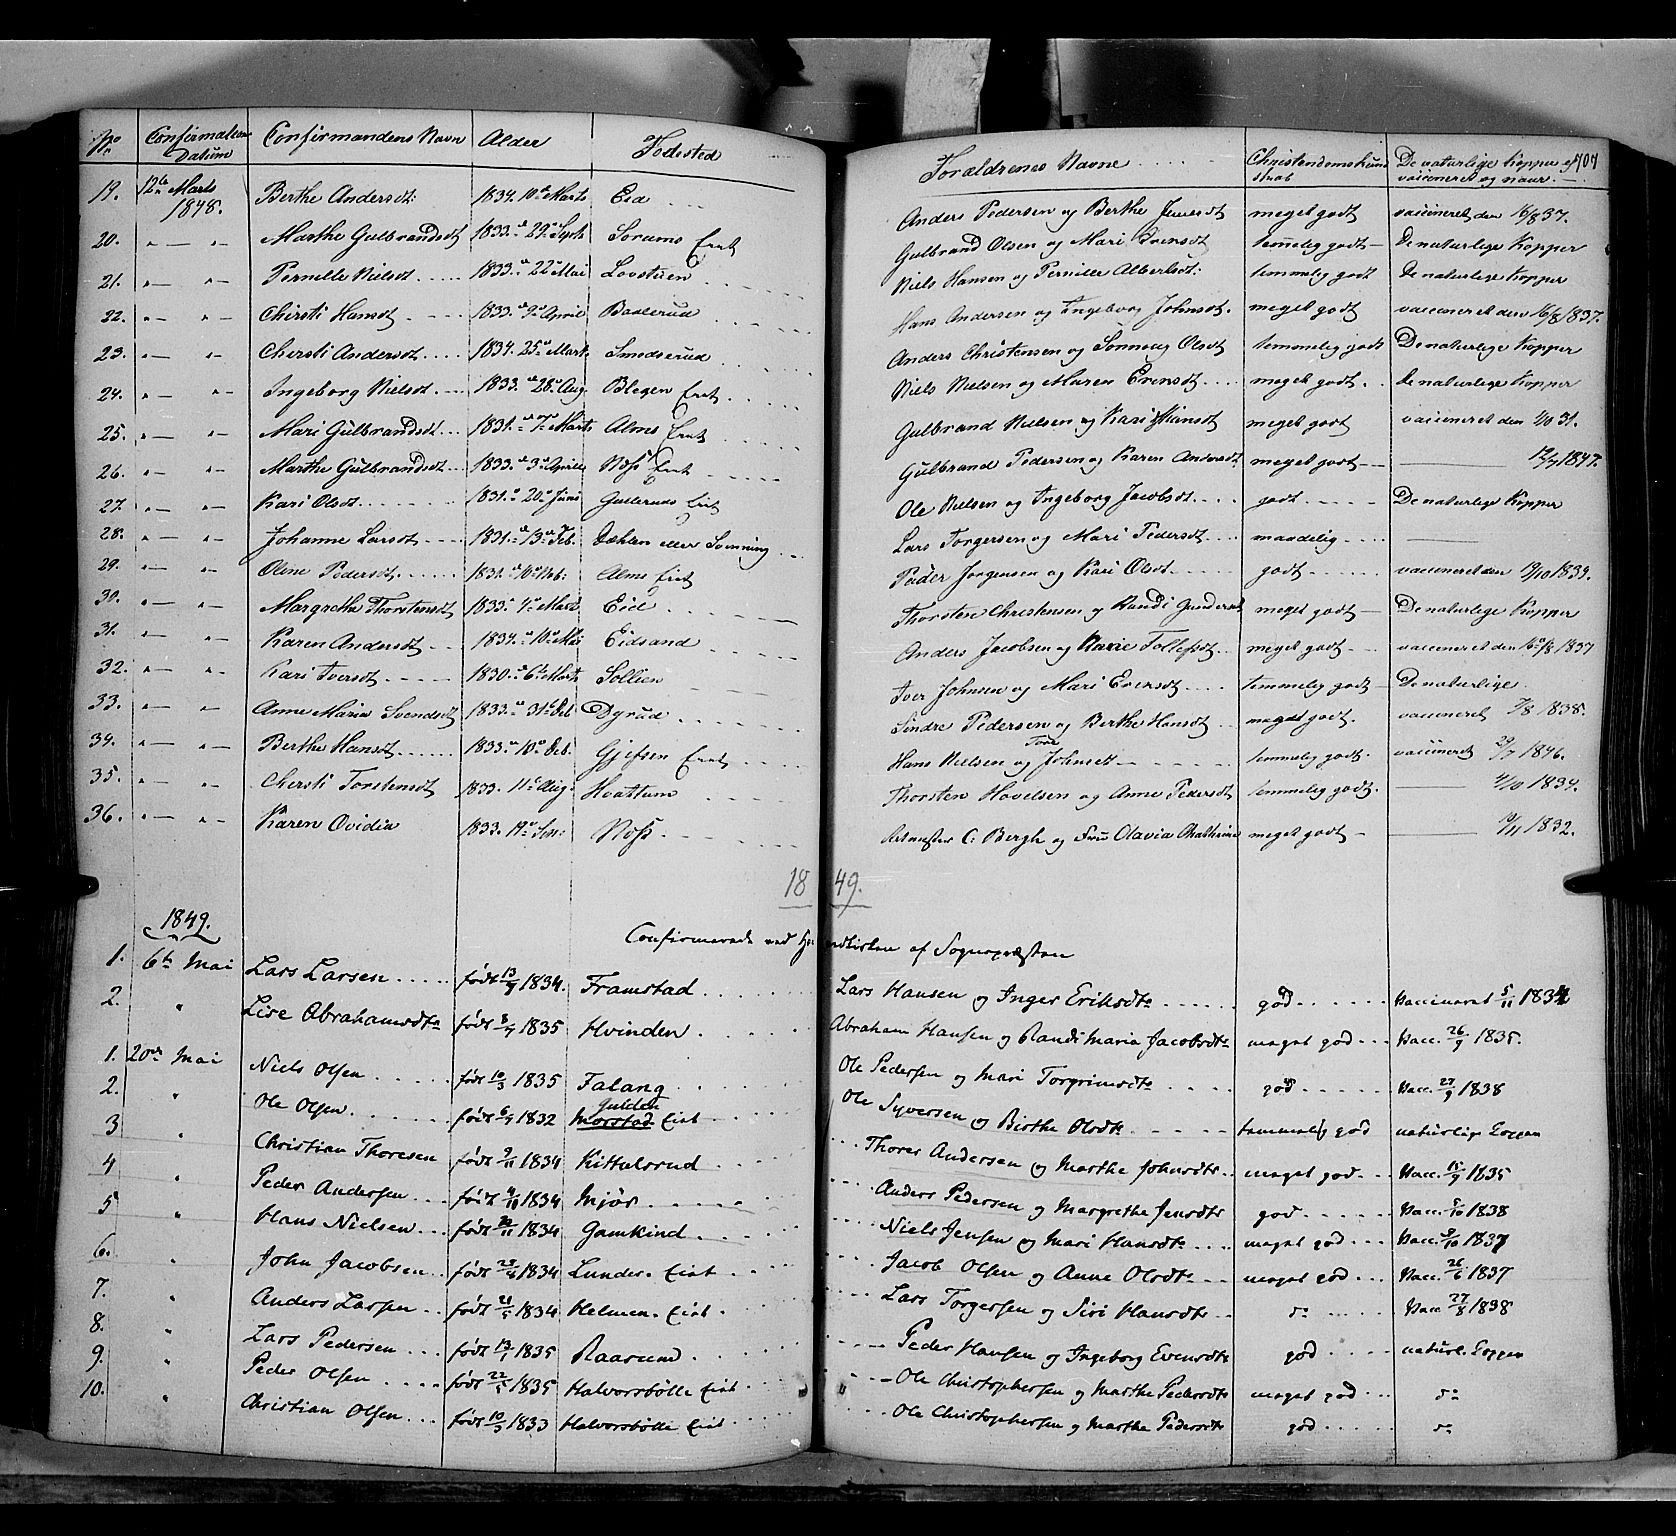 No Confirmations Datum Confirmandens Navn Alder Fødested Forældrenes Navne Christendomskundskab De naturlige Kopper eller vaccineret og naar 707
19. 12te Marts 1848. Berthe Andersdt: 1834. 10de Marts Eid Anders Pedersen og Berthe Jensdt meget godt vaccineret den 16/8 37.
20. " — " — Marthe Gulbrandsdt 1833. 29 Septr Sorums Eiet Gulbrand Olsen og Mari Evensdt temmelig godt De naturlige Kopper
21. " — " — Pernille Nielsdt 1833. 22 Mai Lovstuen Niels Hansen og Pernille Albertsdt: temmelig godt De naturlige Kopper
22. " — " — Chersti Hansdt 1833. 9 April Baslerud Hans Andersen og Ingeborg Johnsdt. meget godt vaccineret den 16/8 1837.
23. " — " — Chersti Andersdt 1834. 25 Mart. Smedserud Anders Christensen og Sønneug Olsdt temmelig godt De naturlige Kopper
24. " — " — Ingeborg Nielsdt 1833. 28 Aug. Blegen Eiet Niels Nielsen og Maren Evensdt meget godt De naturlige Kopper
25. " — " — Mari Gulbrandsdt 1831. Marts Alms Eiet Gulbrand Nielsen og Kari Hansdt meget godt vaccineret den /10 31.
26. " — " — Marthe Gulbrandsdt 1833. 3 April Næss Eiet Gulbrand Pedersen og Karen Andersdt meget godt — 1847.
27. " — " — Kari Olsdt 1831. 20 Juni Gullerud Eiet Ole Nielsen og Ingeborg Jacobsdt godt De naturlige Kopper
28. " — " — Johanne Larsdt 1831. 13 Feb. Dæhlen eller Lars Torgersen og Mari Pedersdt maadelig —
29. " — " — Oline Pedersdt 1831. 10 Alms Eiet Peder Jørgensen og Kari Olsdt godt vaccineret den 1834.
30. " — " — Margrethe Thorstensdt 1833. Eid Thorsten Christensen og Randi Gundersdt meget godt De naturlige Kopper
31. " — " — Karen Andersdt 1834. 10 Mai Eidsand Anders Jacobsen og Marie Tollefsdt meget godt vaccineret den 16/8 1837
32. " — " — Kari Iversdt 1830. 6 Marts Sollien Iver Johnsen og Mari Evensdt temmelig godt De naturlige
33. " — " — Anne Maria Svendsdt 1833. 31 Dyrud Sindre Pedersen og Berthe Hansdt meget godt. vaccineret 7/8 1838.
34. " — " — Berthe Hansdt 1833. 10 Gjefsen Eiet Hans Nielsen Tore Johnsdt temmelig godt. vaccineret 29/7 1846.
35. " — " — Chersti Torstensdt 1833. 11 Aug. Hvattum Thorsten Hovelsen og Anne Pedersdt temmelig godt. — /10 1834.
36. " — " — Karen Ovidia 1833. 19 Næss C. Bergh og Frue Olavia meget godt — /11 1832.
1849.
1849. Confirmerede ved Hovedkirken af Sognepræsten
1. 6te Mai Lars Larsen født 13/9 1834. Framstad Lars Hansen og Inger Eriksdtr god Vaccineret 5/11 1834
2. " Lise Abrahamsdtr født 8/4 1835 Hvinden Abraham Hansen og Randi Maria Jacobsdtr meget god Vacc. 26/9 1835.
1. 20de Mai Niels Olsen født 10/3 1835 Falang Ole Pedersen og Mari Torgrimsdtr god Vacc. 27/9 1838
2. " Ole Olsen født 6/4 1832 Gulden Morstad Eiet Ole Syversen og Birthe Olsdtr temmelig god naturlige Kopper
3 " Christian Thoresen født 9/11 1834 Kittelsrud Thores Andersen og Marthe Johnsdtr meget god Vacc. 15/9 1835
4 " Peder Andersen født 4/10 1834 Mjør Anders Pedersen og Margrethe Jensdtr god Vacc. 5/10 1838
5 " Hans Nielsen født 22/11 1834 Gamkind Niels Jensen og Mari Hansdtr meget god Vacc. 9/10 1837
6. " John Jacobsen født 23/4 1834 Lunder Eiet Jacob Olsen og Anne Olsdtr meget god Vacc. 26/6 1837
7. " Anders Larsen født 21/5 1834 Helmen Eiet Lars Torgersen og Siri Hansdtr do Vacc 27/8 1838
8. " Lars Pedersen født 13/1 1835 Raasum Peder Hansen og Ingeborg Evensdtr god naturl. Kopper
9. " Peder Olsen født 22/5 1835 Halvorsbølle Eiet Ole Christophersen og Marthe Pedersdtr meget god do
10. " Christian Olsen født 10/3 1833 Halvorsbølle Eiet Ole Christophersen og Marthe Pedersdtr god do